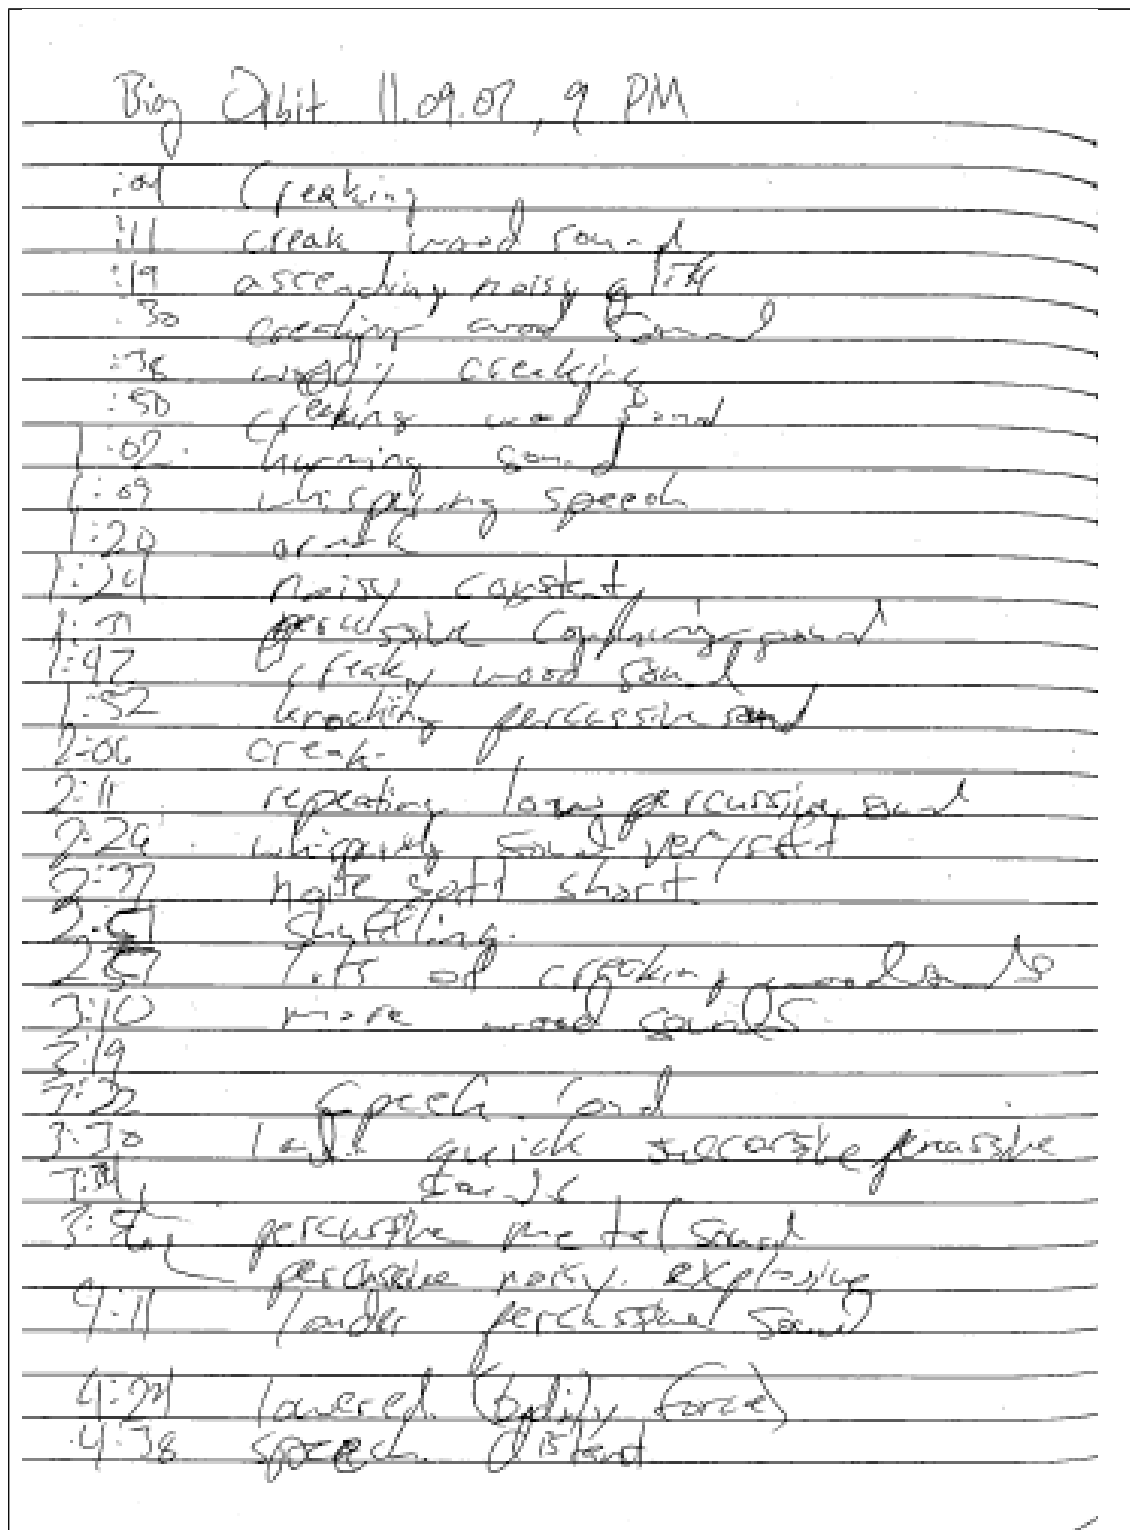 Big Orbit 11.09.07, 9 PM
:04 Creaking
:11 creak wood sound
:19 ascending noisy
:30 creaking wood sound
:38 woody creaking
:50 creaking wood sound
1:02 humming sound
1:09 whispering speech
1:20 creak
1:24 noisy constant
percussive sound
1:42 creaky wood sound
1:52 knocking percussive sound
2:06 creak
2:11 repeating percussive sound
2:24 whispering sound very soft
2:37 note soft short
2:51 shuffling
2:57 lots of creaking wood sounds
3:10 more wood sounds
3:19
3:22 speech loud
3:30 loud quick successive percussive
sounds
percussive metal sound
percussive noisy explosive
4:11 louder percussive sound
4:24 lowered (bodily force)
4:38 speech distant